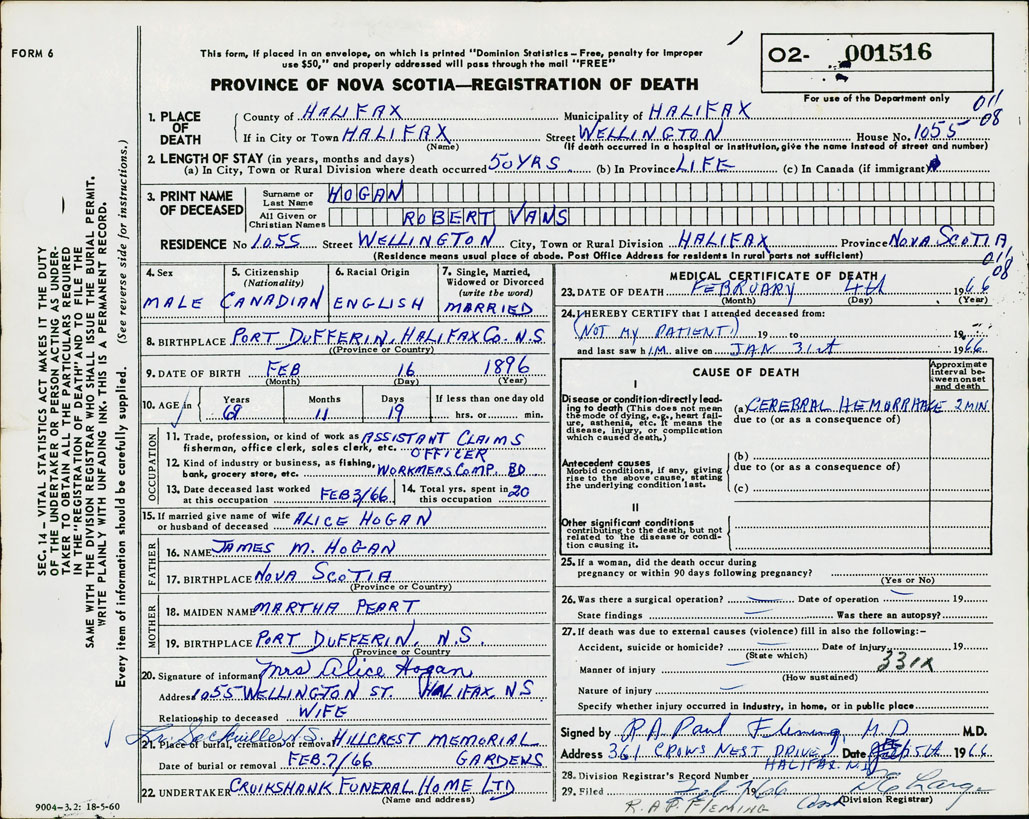 FORM 6
This form, if placed in an envelope, on which is printed "Dominion Statistics – Free, penalty for improper
use $50," and properly addressed will pass through the mail "FREE"
O2- 001516
For use of the Department only
PROVINCE OF NOVA SCOTIA—REGISTRATION OF DEATH
011
08
1. PLACE OF DEATH
County of HALIFAX Municipality of HALIFAX
If in City or Town HALIFAX Street WELLINGTON House No. 1055
(Name) (If death occurred in a hospital or institution, give the name instead of street and number)
2. LENGTH OF STAY (in years, months and days)
(a) In City, Town or Rural Division where death occurred 50 YRS. (b) In Province LIFE (c) In Canada (if immigrant)
3. PRINT NAME OF DECEASED
Surname or Last Name HOGAN
All Given or Christian Names ROBERT VANS
RESIDENCE No 1055 Street WELLINGTON City, Town or Rural Division HALIFAX Province NOVA SCOTIA
(Residence means usual place of abode. Post Office Address for residents in rural parts not sufficient)
011
08
4. Sex MALE
5. Citizenship (Nationality) CANADIAN
6. Racial Origin ENGLISH
7. Single, Married, Widowed or Divorced (write the word) MARRIED
8. BIRTHPLACE PORT DUFFERIN, HALIFAX CO. N.S.
(Province or Country)
9. DATE OF BIRTH FEB 16 1896
(Month) (Day) (Year)
10. AGE in Years Months Days If less than one day old
69 11 19 hrs. or min.
OCCUPATION
11. Trade, profession, or kind of work as ASSISTANT CLAIMS
fisherman, office clerk, sales clerk, etc. OFFICER
12. Kind of industry or business, as fishing,
bank, grocery store, etc. WORKMENS COMP. BD
13. Date deceased last worked at this occupation FEB 3/66
14. Total yrs. spent in this occupation 20
15. If married give name of wife or husband of deceased ALICE HOGAN
FATHER
16. NAME JAMES M. HOGAN
17. BIRTHPLACE NOVA SCOTIA
(Province or Country)
MOTHER
18. MAIDEN NAME MARTHA PEART
19. BIRTHPLACE PORT DUFFERIN, N.S.
(Province or Country)
20. Signature of informant Mrs Alice Hogan
Address 1055 WELLINGTON ST. HALIFAX NS
Relationship to deceased WIFE
Lr. Sackville N.S.
21. Place of burial, cremation or removal HILLCREST MEMORIAL
Date of burial or removal FEB. 7/66 GARDENS
22. UNDERTAKER CRUIKSHANK FUNERAL HOME LTD
(Name and address)
9004-3.2: 18-5-60
MEDICAL CERTIFICATE OF DEATH
23. DATE OF DEATH FEBRUARY 4th 1966
(Month) (Day) (Year)
24. I HEREBY CERTIFY that I attended deceased from:
(NOT MY PATIENT) 19 to 19
and last saw him alive on JAN 31st 1966
CAUSE OF DEATH
Approximate interval between onset and death
I
Disease or condition directly leading to death (This does not mean the mode of dying, e.g., heart failure, asthenia, etc. It means the disease, injury, or complication which caused death.)
(a) CEREBRAL HEMORRHAGE 2 MIN.
due to (or as a consequence of)
Antecedent causes
Morbid conditions, if any, giving rise to the above cause, stating the underlying condition last.
(b)
due to (or as a consequence of)
(c)
II
Other significant conditions
contributing to the death, but not related to the disease or condition causing it.
25. If a woman, did the death occur during
pregnancy or within 90 days following pregnancy?
(Yes or No)
26. Was there a surgical operation? Date of operation 19
State findings Was there an autopsy?
27. If death was due to external causes (violence) fill in also the following:–
Accident, suicide or homicide? Date of injury 19
(State which)
331x
Manner of injury
(How sustained)
Nature of injury
Specify whether injury occurred in industry, in home, or in public place
Signed by R A Paul Fleming, M.D. M.D.
Address 361 CROWS NEST DRIVE, Date 5th 1966
HALIFAX. N.S.
28. Division Registrar's Record Number
29. Filed Feb 7 1966
(Division Registrar)
R. A. P. FLEMING
SEC. 14 – VITAL STATISTICS ACT MAKES IT THE DUTY
OF THE UNDERTAKER OR PERSON ACTING AS UNDER-
TAKER TO OBTAIN ALL THE PARTICULARS REQUIRED
IN THE "REGISTRATION OF DEATH" AND TO FILE THE
SAME WITH THE DIVISION REGISTRAR WHO SHALL ISSUE THE BURIAL PERMIT.
WRITE PLAINLY WITH UNFADING INK. THIS IS A PERMANENT RECORD.
Every item of information should be carefully supplied. (See reverse side for instructions.)